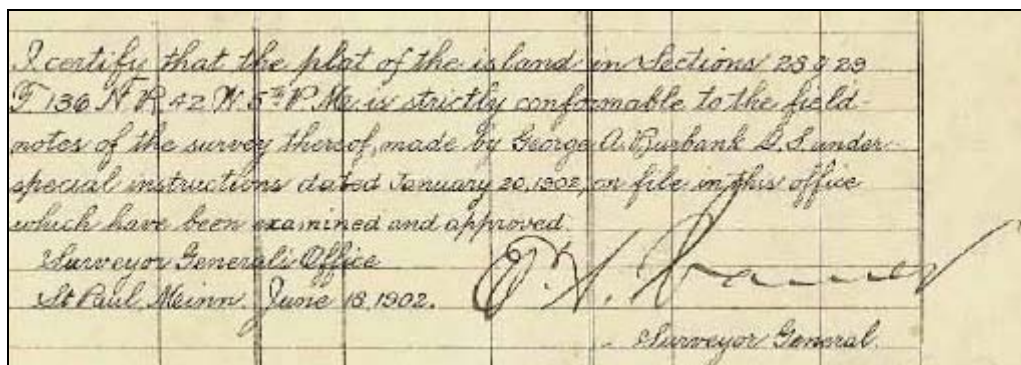 I certify that the plat of the island in Sections 23 & 29
T. 136 N. R. 42 W. 5th P. Me. is strictly conformable to the field-
notes of the survey thereof, made by George A. Burbank D. S. under
special instructions dated January 20, 1902, on file in this office
which have been examined and approved.
Surveyor General's Office
St Paul, Meinn. June 18, 1902.
Surveyor General.